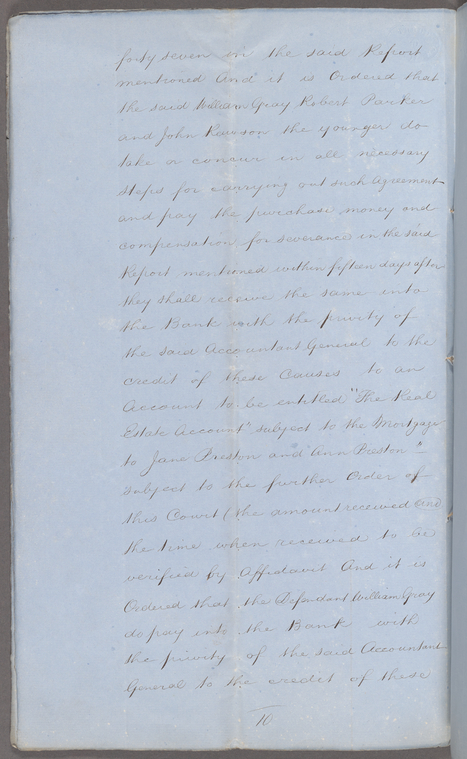 forty seven in the said Report
mentioned And it is Ordered that
the said William Gray Robert Parker
and John Rawson the younger do
take or concur in all necessary
steps for carrying out such Agreement
and pay the purchase money and
compensation for severance in the said
Report mentioned within fifteen days after
they shall receive the same into
the Bank with the privity of
the said Accountant General to the
credit of these Causes to an
Account to be entitled "The Real
Estate Account" subject to the Mortgage
to Jane Preston and Ann Preston"
subject to the further Order of
this Court (the amount received and
the time when received to be
verified by Affidavit And it is
Ordered that the Defendant William Gray
do pay into the Bank with
the privity of the said Accountant
General to the credit of these
10